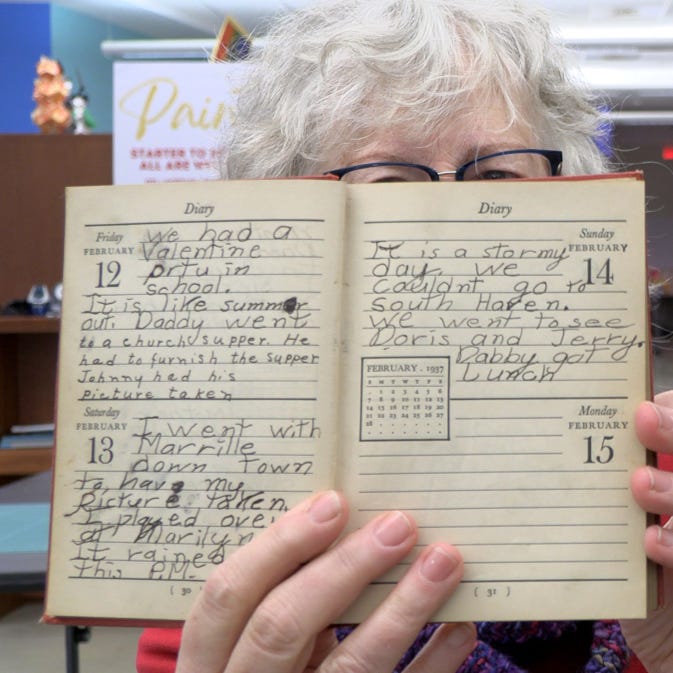 Pain
STARTER TO
ALL ARE
Diary
Friday
FEBRUARY
12
We had a
Valentine
prty in
school.
It is like summer
out. Daddy went
to a church supper. He
had to furnish the supper
Johnny had his
picture taken
Saturday
FEBRUARY
13
I went with
Marrille
down town
to have my
picture taken.
I played over
at Marilyn
It rained
this P.M.
( 30 )
Diary
Sunday
FEBRUARY
14
It is a stormy
day. we
Couldnt go to
South Haven.
We went to see
Doris and Jerry.
Dabby got
Lunch
FEBRUARY . 1937
S M T W T F S
. 1 2 3 4 5 6
7 8 9 10 11 12 13
14 15 16 17 18 19 20
21 22 23 24 25 26 27
28 . . . . . .
Monday
FEBRUARY
15
( 31 )